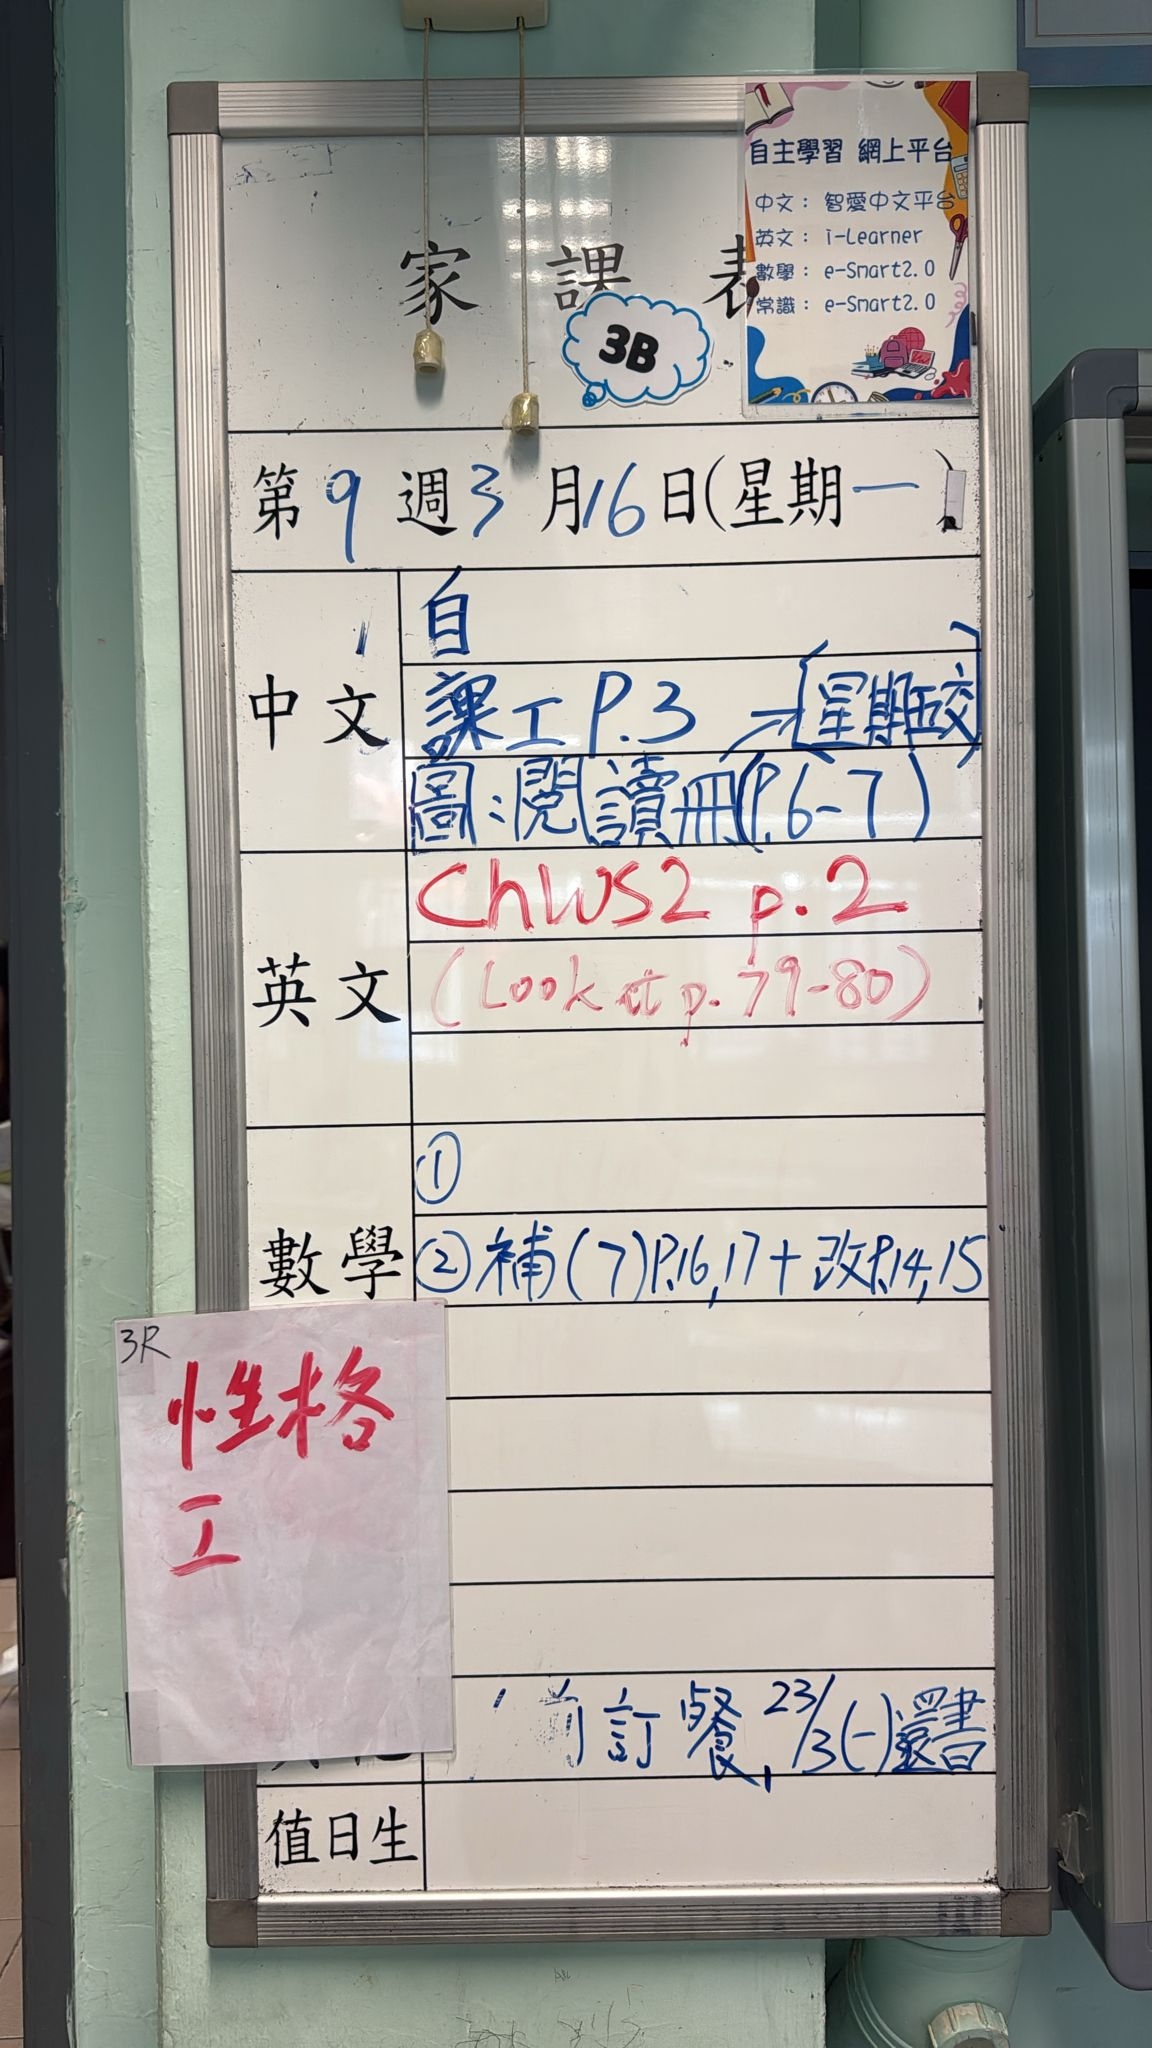 自主學習 網上平台
中文: 智愛中文平台
英文: i-Learner
數學: e-Smart2.0
常識: e-Smart2.0
家課表
3B
第9週3月16日(星期一)
中文
自
課工P.3 →[星期五交]
圖:閱讀冊(P.6-7)
英文
ChWS2 p.2
(Look at p.79-80)
數學
①
②補(7)P.16,17+改P.14,15
3R
性格
工
前訂餐, 23/3(一)還書
值日生